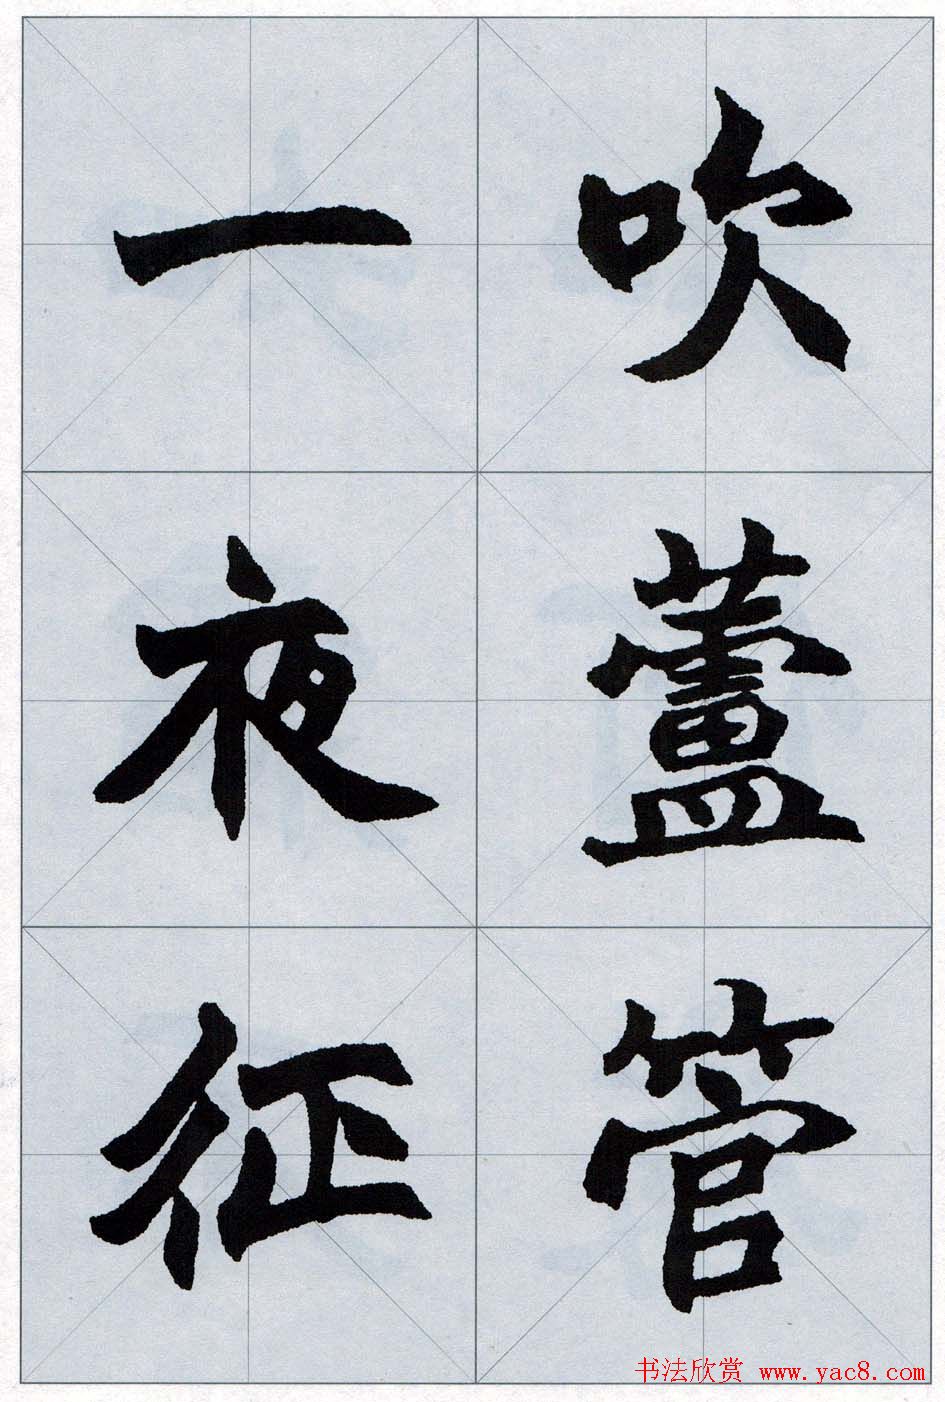 吹蘆管
一夜征
书法欣赏 www.yac8.com